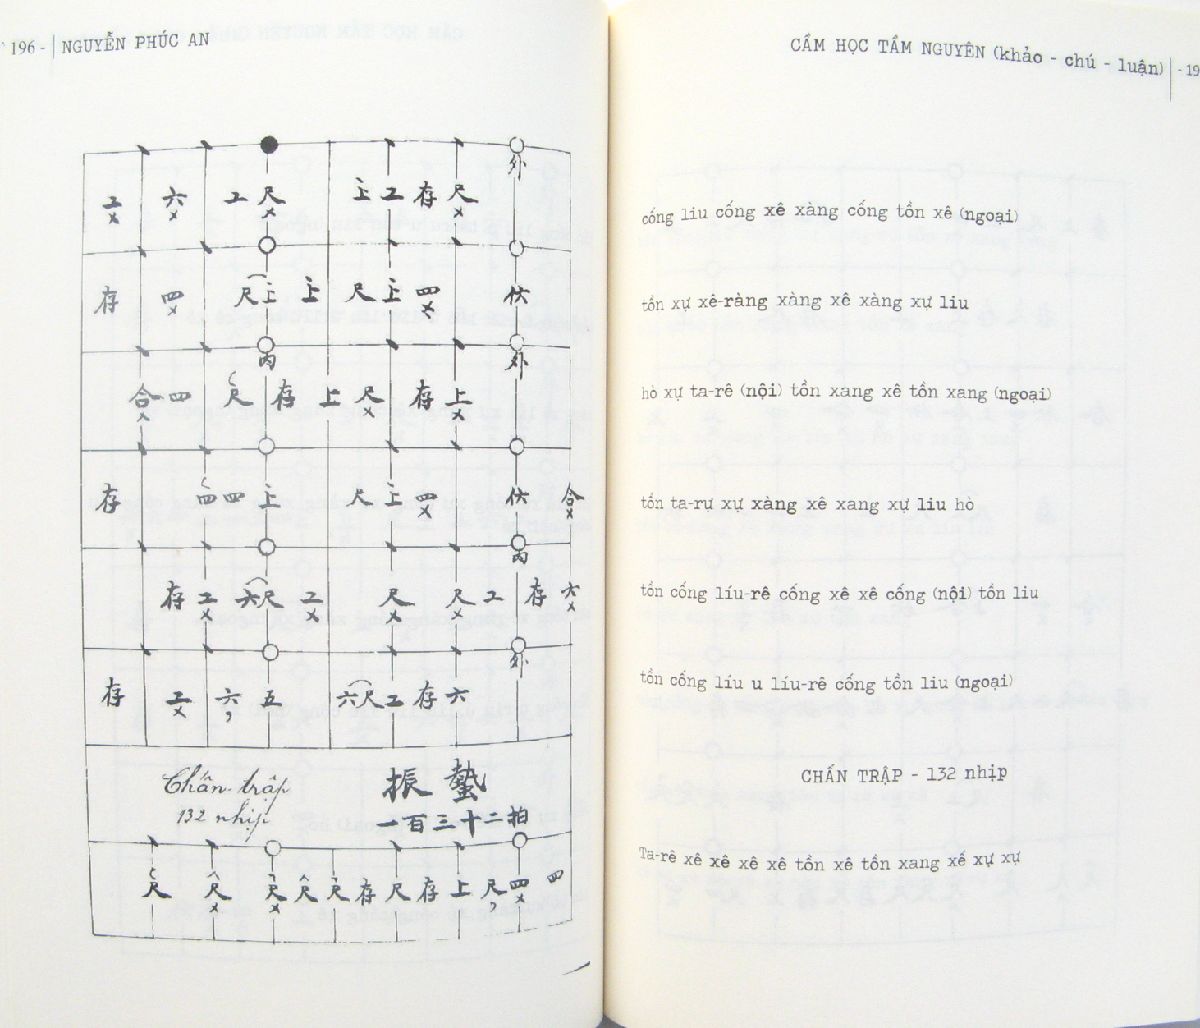 196 - NGUYỄN PHÚC AN
外
工 六 工 尺 上 工 存 尺
存 四 尺 上 上 尺 上 四 伏
丙 外
合 四 尺 存 上 尺 存 上
存 四 四 上 尺 上 四 伏 合
丙
存 工 六 尺 工 尺 尺 工 存 六
外
存 工 六 五 六 尺 工 存 六
Chấn trập
132 nhịp
振 蟄
一百三十二拍
尺 尺 尺 尺 尺 存 尺 存 上 尺 四 四
CẦM HỌC TẦM NGUYÊN (khảo - chú - luận) - 19
cống liu cống xê xàng cống tồn xê (ngoại)
tồn xự xê-ràng xàng xê xàng xự liu
hò xự ta-rê (nội) tồn xang xê tồn xang (ngoại)
tồn ta-rư xự xàng xê xang xự liu hò
tồn cống líu-rê cống xê xê cống (nội) tồn liu
tồn cống líu u líu-rê cống tồn liu (ngoại)
CHẤN TRẬP - 132 nhịp
Ta-rê xê xê xê xê tồn xê tồn xang xế xự xự